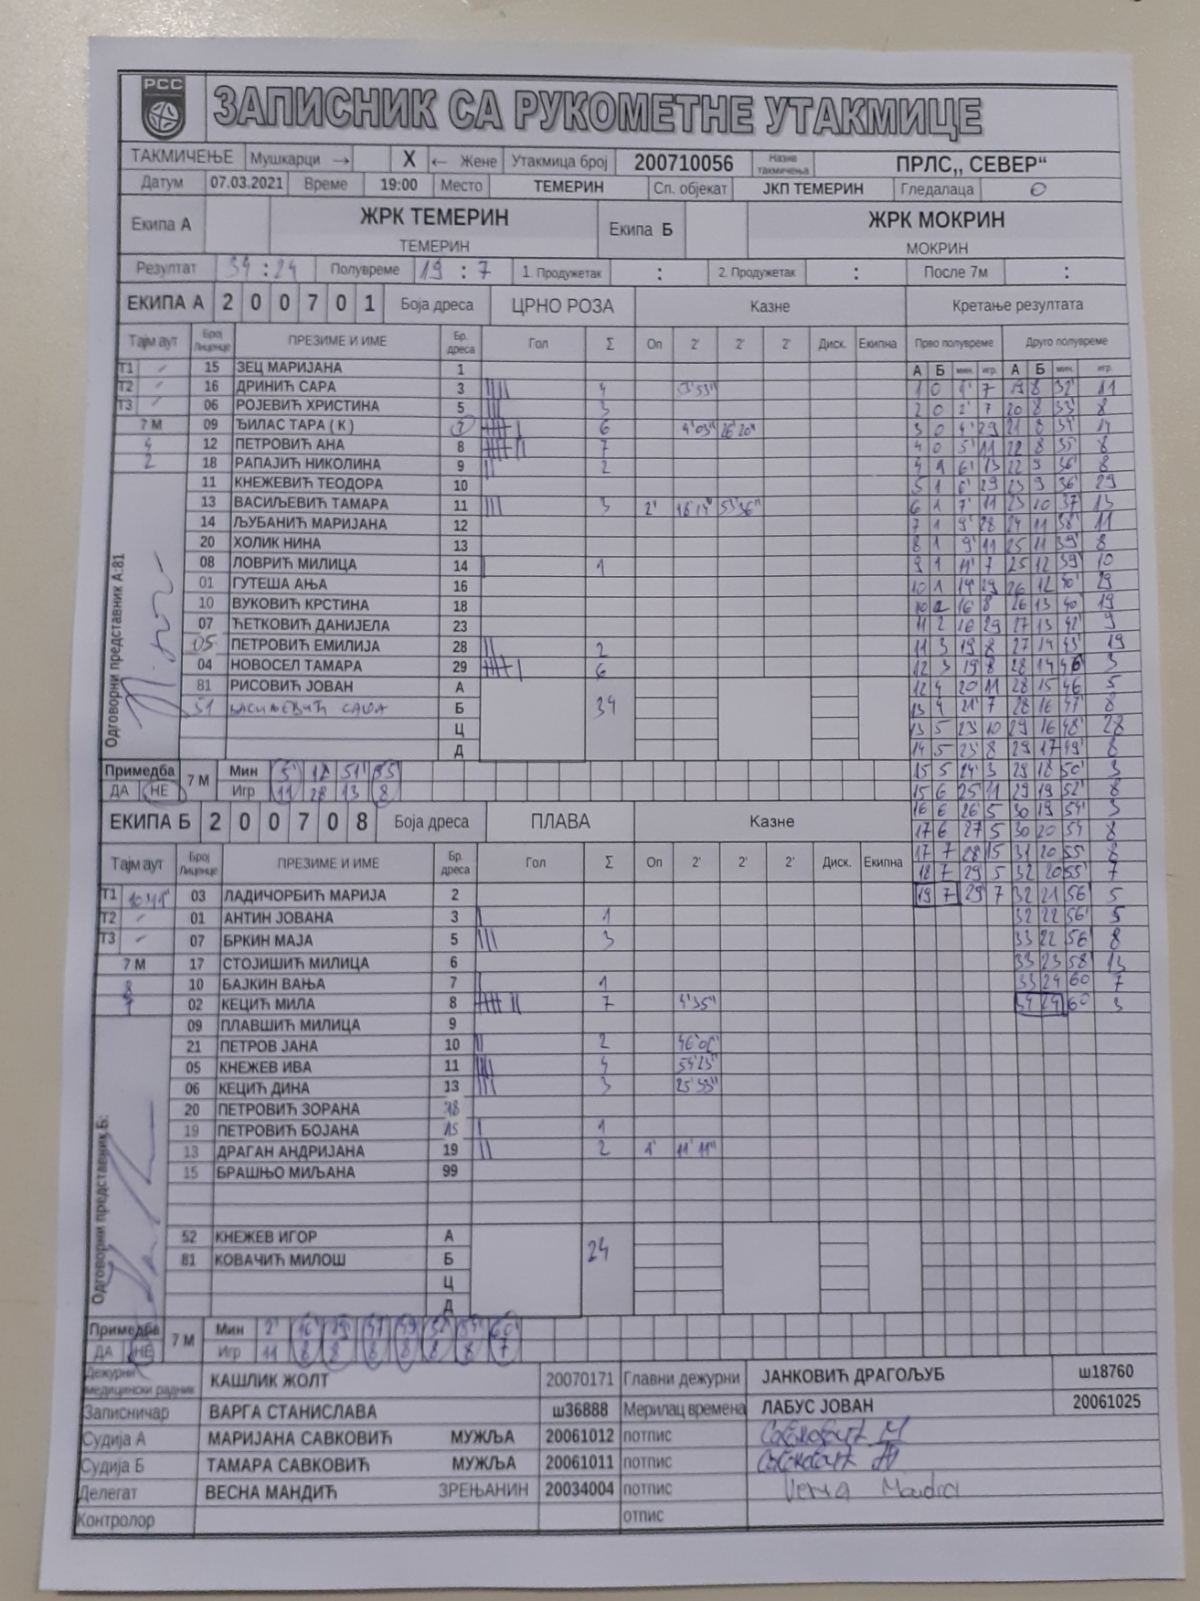 РСС
ЗАПИСНИК СА РУКОМЕТНЕ УТАКМИЦЕ
ТАКМИЧЕЊЕ Мушкарци → X ← Жене Утакмица број 200710056 Назив такмичења ПРЛС,, СЕВЕР“
Датум 07.03.2021 Време 19:00 Место ТЕМЕРИН Сп. објекат ЈКП ТЕМЕРИН Гледалаца 0
Екипа А ЖРК ТЕМЕРИН Екипа Б ЖРК МОКРИН
ТЕМЕРИН МОКРИН
Резултат 34 : 24 Полувреме 19 : 7 1. Продужетак : 2. Продужетак : После 7м :
ЕКИПА А 2 0 0 7 0 1 Боја дреса ЦРНО РОЗА Казне Кретање резултата
Тајм аут Број Лиценце ПРЕЗИМЕ И ИМЕ Бр. дреса Гол Σ Оп 2' 2' 2' Диск. Екипна Прво полувреме Друго полувреме
А Б мин. игр. А Б мин. игр.
Т1 15 ЗЕЦ МАРИЈАНА 1 1 0 1' 7 19 8 32' 11
Т2 16 ДРИНИЋ САРА 3 4 2 0 2' 7 20 8 33' 8
Т3 06 РОЈЕВИЋ ХРИСТИНА 5 3 3 0 4' 29 21 8 34'
7 М 09 ЂИЛАС ТАРА ( К ) 7 6 4'03" 26'20" 4 0 5' 11 22 8 35' 8
4 12 ПЕТРОВИЋ АНА 8 7 22 9 36' 8
2 18 РАПАЈИЋ НИКОЛИНА 9 2 5 1 6' 29 23 9 36' 29
11 КНЕЖЕВИЋ ТЕОДОРА 10 6 1 7' 11 23 10 37' 13
13 ВАСИЉЕВИЋ ТАМАРА 11 3 2' 53'36" 7 1 9' 28 24 11 38' 11
14 ЉУБАНИЋ МАРИЈАНА 12 8 1 9' 11 25 11 39' 8
20 ХОЛИК НИНА 13 9 1 11' 7 25 12 39' 10
08 ЛОВРИЋ МИЛИЦА 14 1 10 1 14' 29 26 12 40' 29
01 ГУТЕША АЊА 16 10 2 16 8 26 13 40' 19
10 ВУКОВИЋ КРСТИНА 18 11 2 16 29 27 13 42' 9
07 ЋЕТКОВИЋ ДАНИЈЕЛА 23 11 3 19 8 27 14 43' 19
05 ПЕТРОВИЋ ЕМИЛИЈА 28 2 12 3 19 8 28 14 46' 3
04 НОВОСЕЛ ТАМАРА 29 6 12 4 20 11 28 15 46 5
81 РИСОВИЋ ЈОВАН А 34 13 4 21' 7 28 16 47' 8
51 ВАСИЉЕВИЋ САША Б 13 5 23' 10 29 16 48' 28
Ц 14 5 23' 8 29 17 49' 8
Д 15 5 24' 3 29 18 50' 3
Одговорни представник А:81
Примедба 7 М Мин 5' 12 51' 55 15 6 25 11 29 19 52' 8
ДА НЕ Игр 11 28 13 8 16 6 26 5 30 19 54' 3
ЕКИПА Б 2 0 0 7 0 8 Боја дреса ПЛАВА Казне 17 6 27 5 30 20 54 8
Тајм аут Број Лиценце ПРЕЗИМЕ И ИМЕ Бр. дреса Гол Σ Оп 2' 2' 2' Диск. Екипна 17 7 28 15 31 20 55 8
18 7 29 5 32 20 55' 7
Т1 03 ЛАДИЧОРБИЋ МАРИЈА 2 19 7 29 7 32 21 56' 5
Т2 01 АНТИН ЈОВАНА 3 1 32 22 56' 5
Т3 07 БРКИН МАЈА 5 3 33 22 56' 8
7 М 17 СТОЈИШИЋ МИЛИЦА 6 33 23 58' 13
8 10 БАЈКИН ВАЊА 7 1 33 24 60 7
7 02 КЕЦИЋ МИЛА 8 7 4'35" 34 24 60 3
09 ПЛАВШИЋ МИЛИЦА 9
21 ПЕТРОВ ЈАНА 10 2
05 КНЕЖЕВ ИВА 11 4
06 КЕЦИЋ ДИНА 13 3 25'53"
20 ПЕТРОВИЋ ЗОРАНА 18
19 ПЕТРОВИЋ БОЈАНА 15 1
13 ДРАГАН АНДРИЈАНА 19 2 1' 11'11"
15 БРАШЊО МИЉАНА 99
52 КНЕЖЕВ ИГОР А 24
81 КОВАЧИЋ МИЛОШ Б
Ц
Д
Одговорни представник Б:
Примедба 7 М Мин 2' 16'
ДА НЕ Игр 11 8 8 8 8 8 8 7
Дежурни медицински радник КАШЛИК ЖОЛТ 20070171 Главни дежурни ЈАНКОВИЋ ДРАГОЉУБ ш18760
Записничар ВАРГА СТАНИСЛАВА ш36888 Мерилац времена ЛАБУС ЈОВАН 20061025
Судија А МАРИЈАНА САВКОВИЋ МУЖЉА 20061012 потпис
Судија Б ТАМАРА САВКОВИЋ МУЖЉА 20061011 потпис
Делегат ВЕСНА МАНДИЋ ЗРЕЊАНИН 20034004 потпис
Контролор отпис